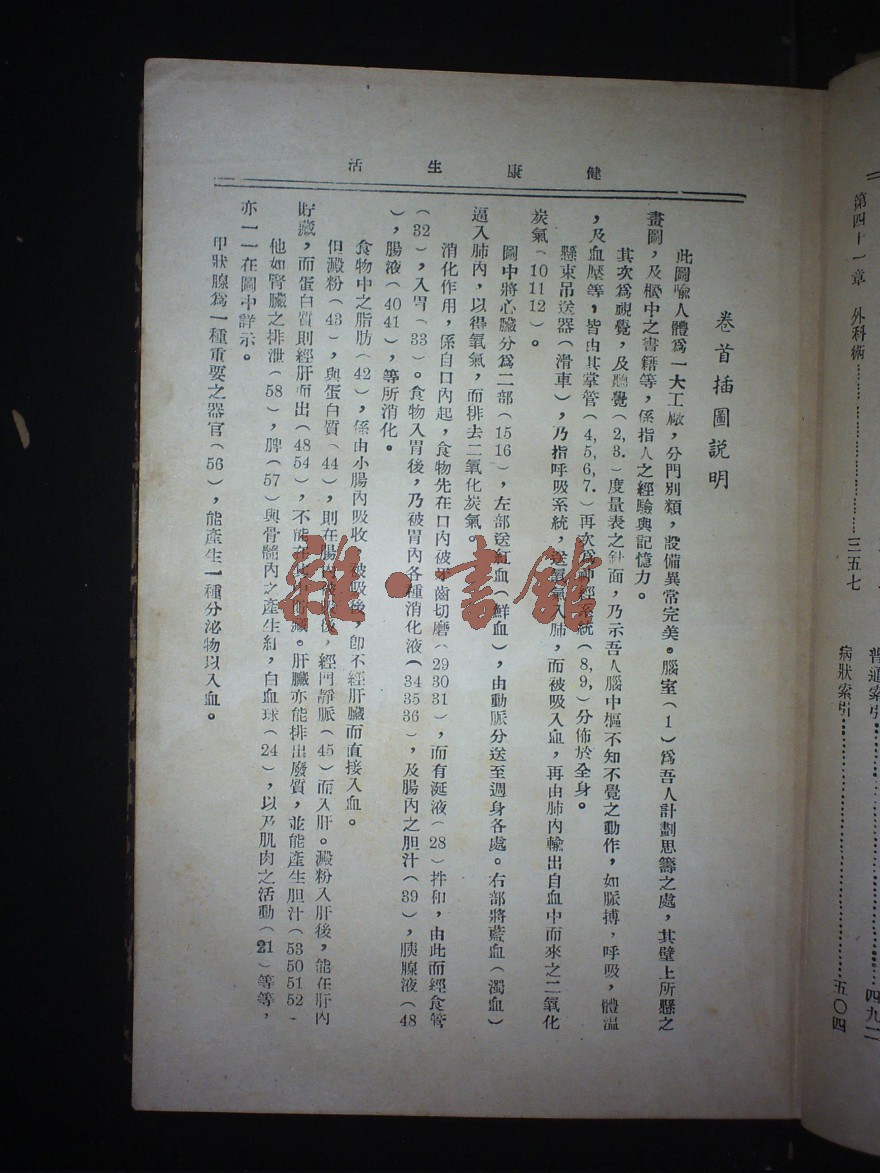 健康生活
卷首插圖說明
此圖喻人體爲一大工廠，分門別類，設備異常完美。腦室（1）爲吾人計劃思籌之處，其壁上所懸之
畫圖，及櫃中之書籍等，係指人之經驗與記憶力。
其次爲視覺，及聽覺（2,3.）度量表之針面，乃示吾人腦中樞不知不覺之動作，如脈搏，呼吸，體溫
，及血壓等，皆由其掌管（4,5,6,7.）再次爲神經系統（8,9,）分佈於全身。
懸束吊送器（滑車），乃指呼吸系統，送氧氣入肺，而被吸入血，再由肺內輸出自血中而來之二氧化
炭氣（10 11 12）。
圖中將心臟分爲二部（15 16），左部送紅血（鮮血），由動脈分送至週身各處。右部將藍血（濁血）
逼入肺內，以得氧氣，而排去二氧化炭氣。
消化作用，係自口內起，食物先在口內被牙齒切磨（29 30 31），而有涎液（28）拌和，由此而經食管
（32），入胃（33）。食物入胃後，乃被胃內各種消化液（34 35 36），及腸內之胆汁（39），胰腺液（48
），腸液（40 41），等所消化。
食物中之脂肪（42），係由小腸內吸收，被吸後，卽不經肝臟而直接入血。
但澱粉（43），與蛋白質（44），則在腸內被吸後，經門靜脈（45）而入肝。澱粉入肝後，能在肝內
貯藏，而蛋白質則經肝而出（48 54），不能在其內貯藏。肝臟亦能排出廢質，並能產生胆汁（53 50 51 52-
他如腎臟之排泄（58），脾（57）與骨髓內之產生紅，白血球（24），以及肌肉之活動（21）等等，
亦一一在圖中詳示。
甲狀腺爲一種重要之器官（56），能產生一種分泌物以入血。
第四十一章　外科術……三五七
普通索引……四九二
病狀索引……五〇四
雜·書館